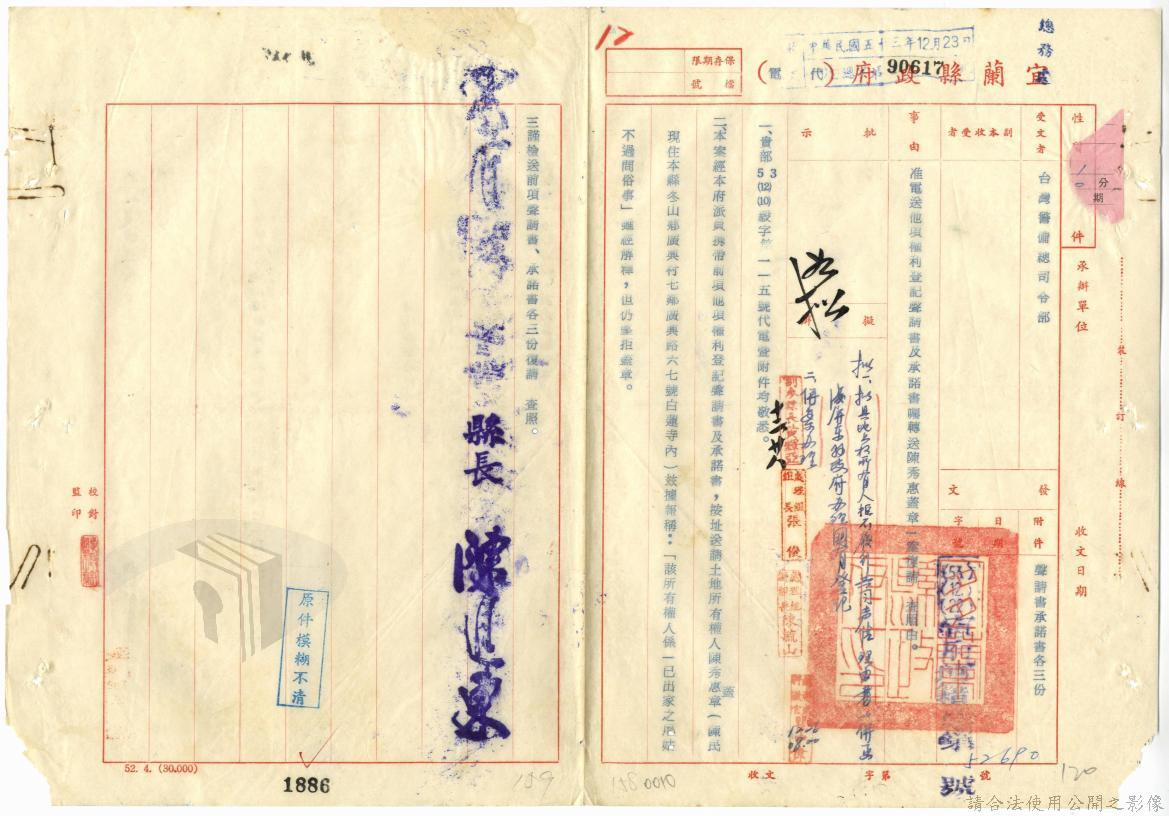 總務
中華民國五十三年12月23日
90617
宜蘭縣政府（代電）
保存期限
檔號
性
件
分
期
受文者
台灣警備總司令部
副本收受者
發文
附件
聲請書承諾書各三份
日期
字號
承辦單位
收文日期
裝訂線
事由
准電送他項權利登記聲請書及承諾書囑轉送陳秀惠蓋章一案復請 查照由。
批示
擬辦
如擬
二、併案办理
一、貴部53(12)(10)設字第一一五號代電暨附件均敬悉。
二、本案經本府派員携帶前項他項權利登記聲請書及承諾書，按址送請土地所有權人陳秀惠蓋章（陳民
現住本縣冬山鄉廣興村七鄰廣興路六七號白蓮寺內）玆據報稱：「該所有權人係一已出家之尼姑
不過問俗事」雖經解釋，但仍堅拒蓋章。
三、謹檢送前項聲請書、承諾書各三份復請 查照。
縣長 陳進東
校對
監印
原件模糊不清
收文
字第
號
52690
120
158
0010
159
52. 4. (30.000)
1886
請合法使用公開之影像